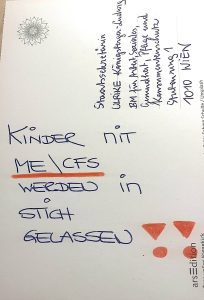 Staatssekretärin
ULRIKE Königsberger-Ludwig
BM für Arbeit, Soziales,
Gesundheit, Pflege und
Konsumentenschutz
Stubenring 1
1010 WIEN
KINDER MIT
ME/CFS
WERDEN in
STICH
GELASSEN !!
arsEdition